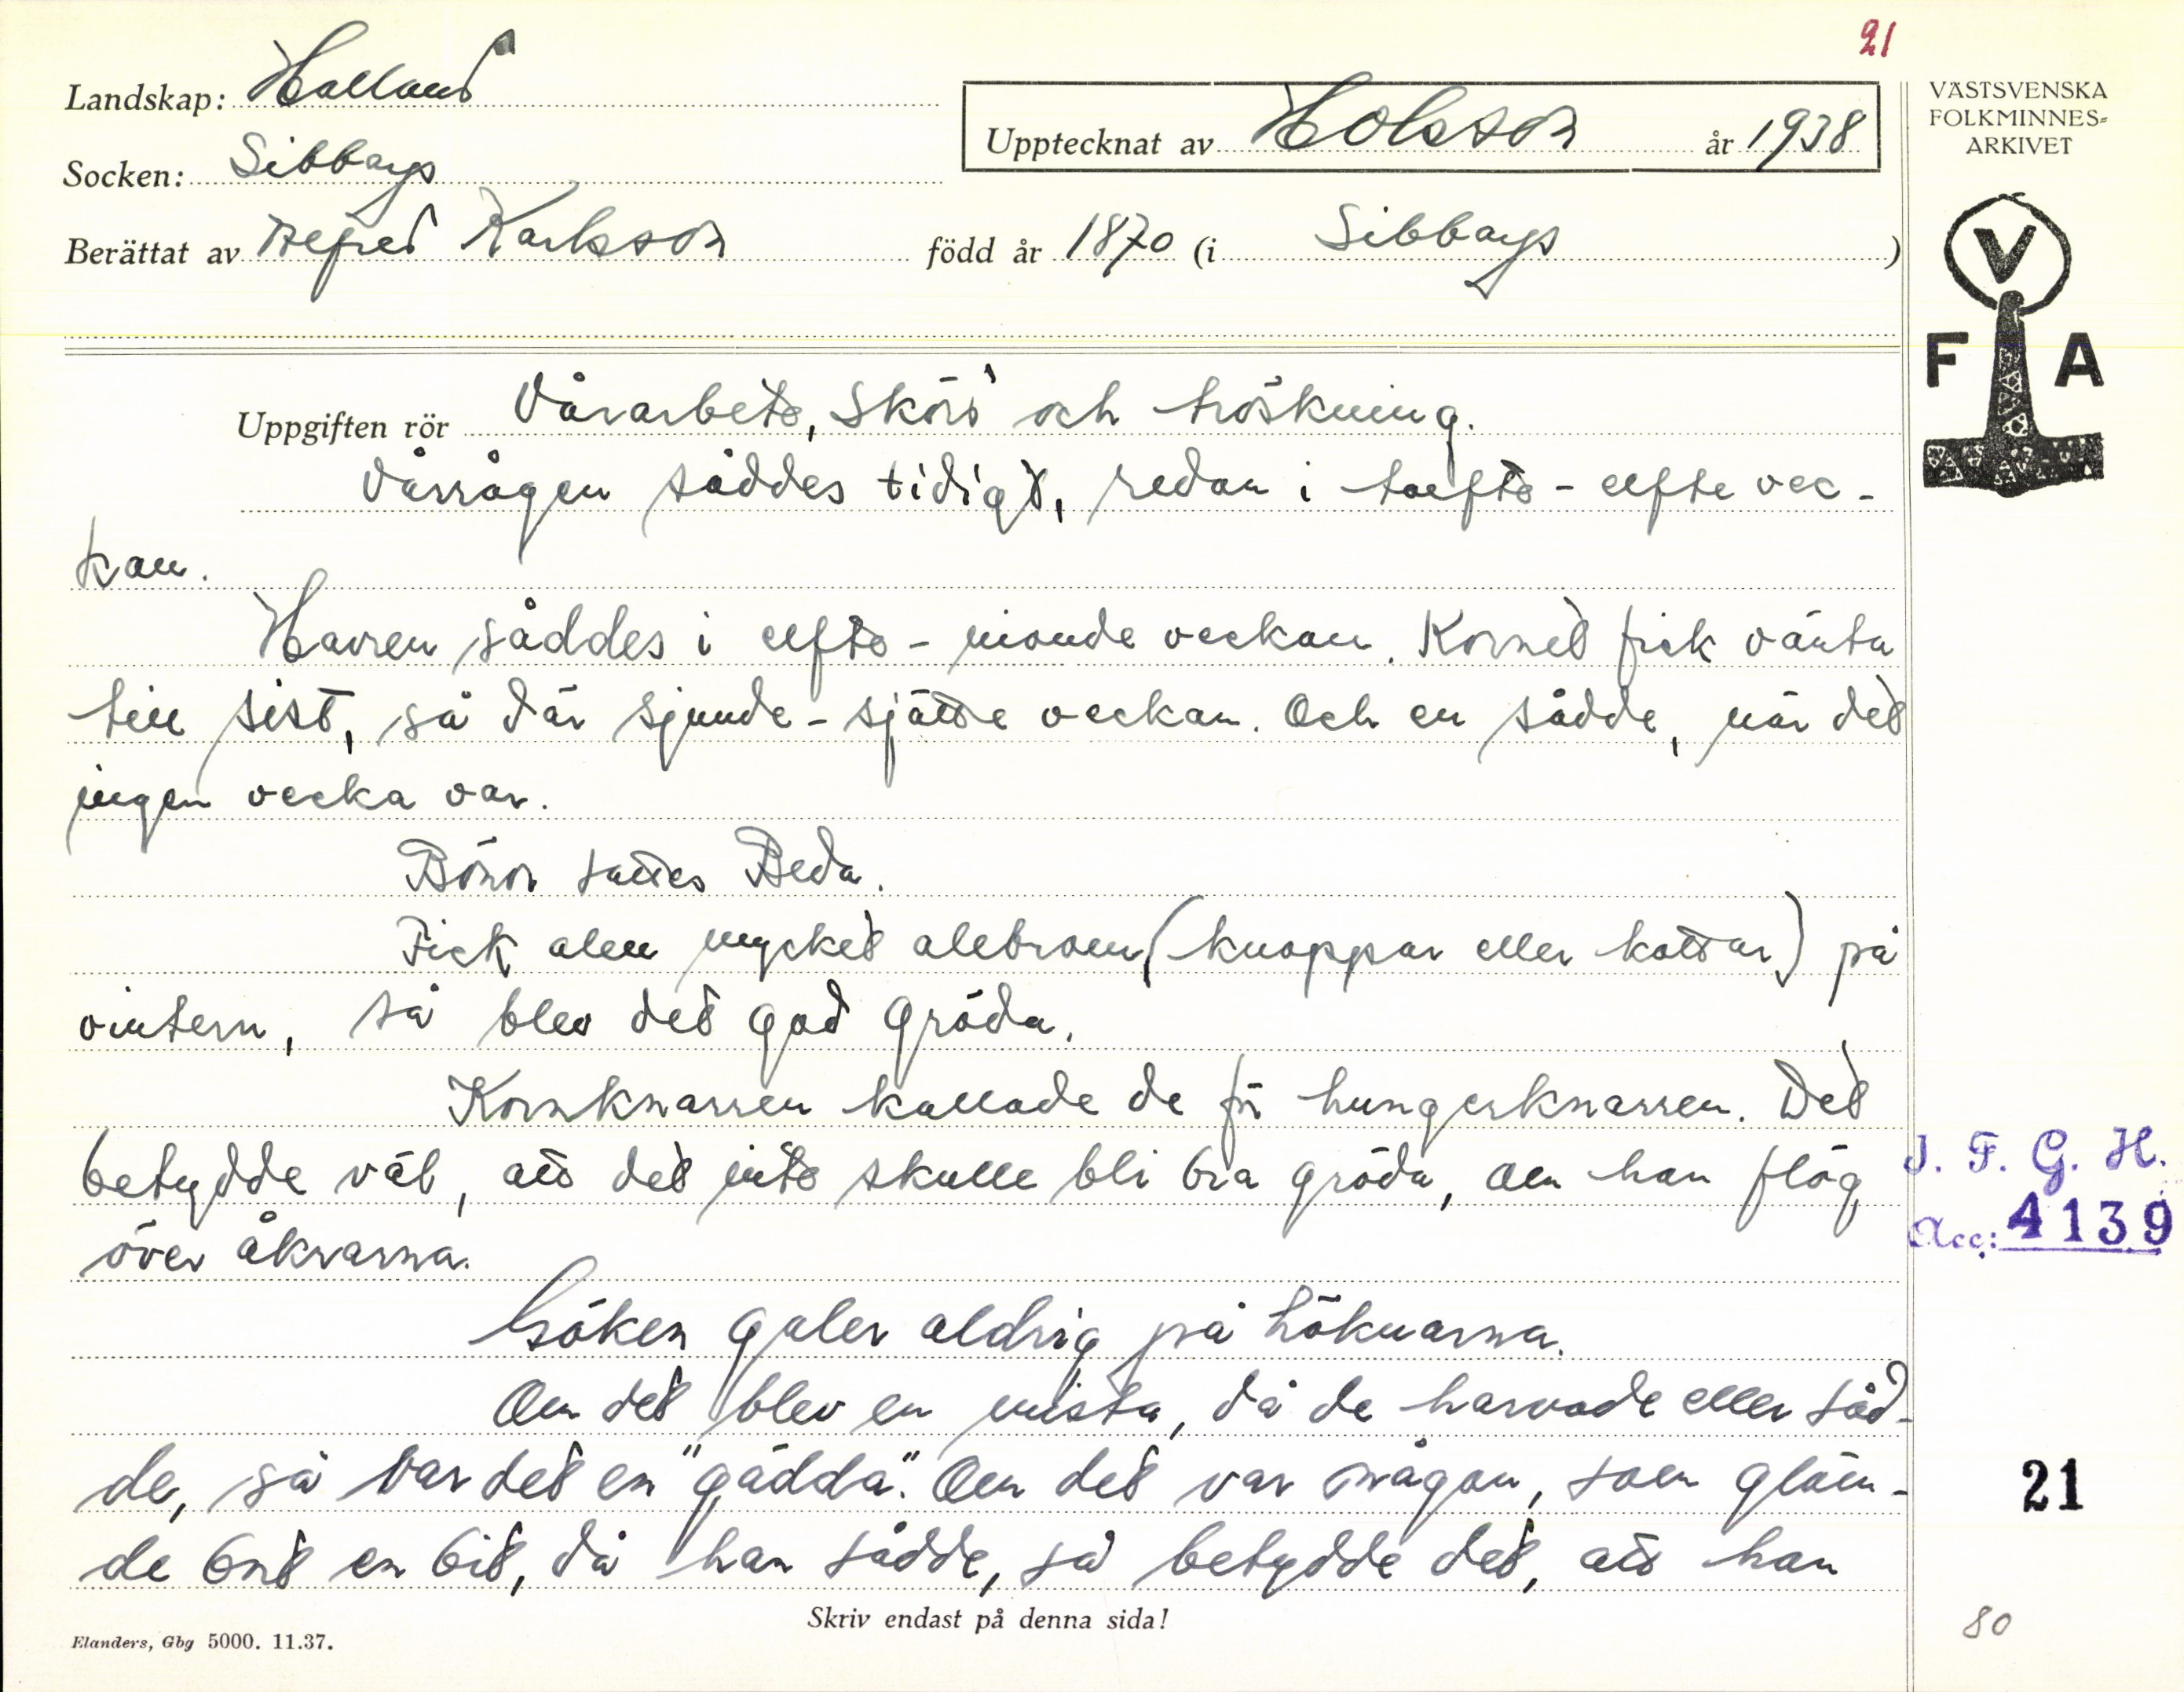 21
Landskap: Halland
VÄSTSVENSKA
FOLKMINNES-
ARKIVET
Upptecknat av Holsson år 1938
Socken: Sibbarp
Berättat av Alfred Karlsson född år 1870 (i Sibbarp)
V
F A
Uppgiften rör Vårarbete, skörd och tröskning.
Vårrågen såddes tidigt, redan i tolfte - elfte vec-
kan.
Havren såddes i elfte - nionde veckan. Kornet fick vänta
till sist, så där sjunde - sjätte veckan. Och en sådde, när det
ingen vecka var.
Bönor sattes Beda.
Fick alen mycket alebrom (knoppar eller kottar) på
vintern, så blev det god gröda.
Kornknarren kallade de för hungerknarren. Det
betydde väl, att det inte skulle bli bra gröda, om han flög
över åkrarna.
J. F. G. H.
Acc: 4139
Göken galer aldrig på hökuarna.
Om det blev en mista, då de harvade eller såd-
de, så var det en "gädda". Om det var någon, som glöm-
de bort en bit, då han sådde, så betydde det, att han
21
Skriv endast på denna sida!
Elanders, Gbg 5000. 11.37.
80